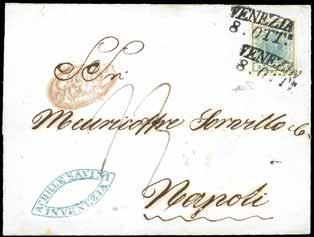 VENEZIA
8. OTT.
VENEZIA
8. OTT.
Meuricoffre Sorvillo & C.
ACHILLE SAVINI
IN VENEZIA
Napoli